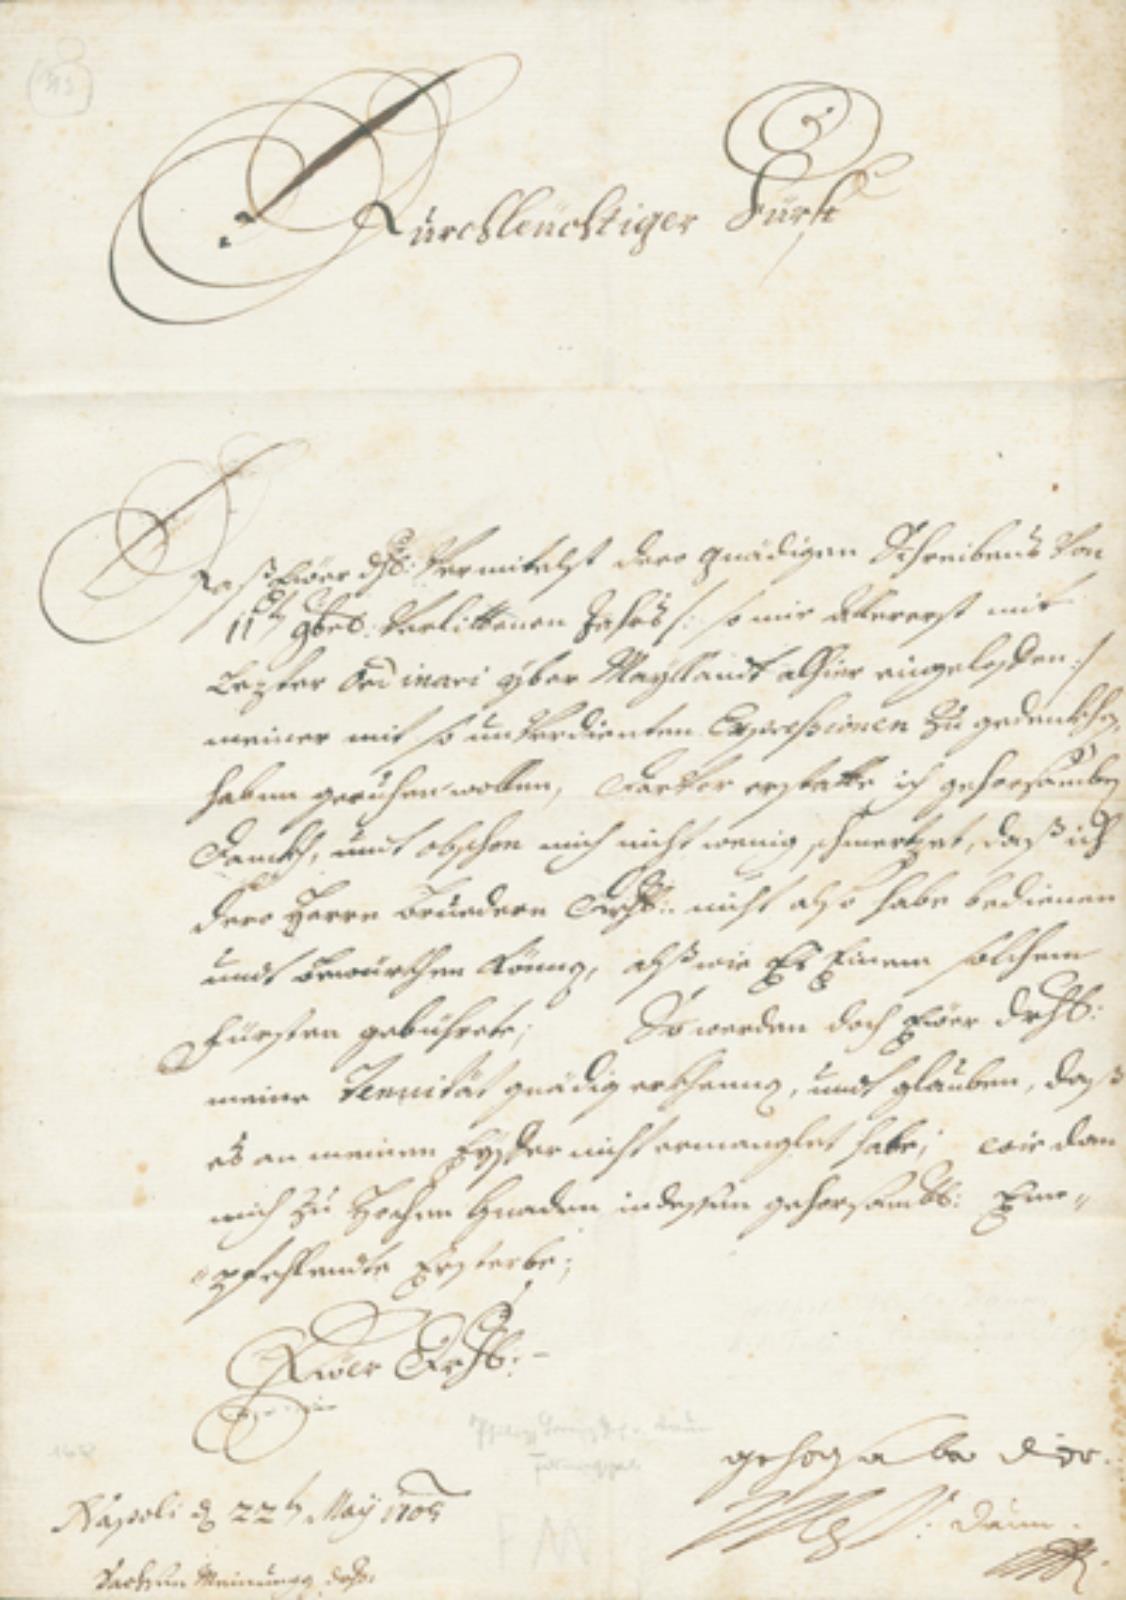 Durchleüchtiger Fürst
Daß Eüer Dhl: Vermitelst dero gnädigen Schreibens Von
11th 9bris: Verlittenen Jahrs /: so mir Allererst mit
Lezter Ordinari yber Mayllandt alhier eingeloffen :/
meiner mit so unVerdienten Expressionen zu gedenkhen
haben geruhen wollen, Darfor erstatte ich gehorsambsten
Dankh, undt obschon mich nicht wenig schmertzet, daß ich
dero Herrn Bruedern Drchl: nicht also habe bedienen
undt bewürthen können, alß wie Es Einem solchem
Fürsten gebührete; So werden doch Eüer Drchl:
meine Tenuität gnädig erkhennen, undt glauben, daß
es an meinen Eyffer nicht ermanglet habe; wie dan
mich zu Hochen Gnaden indessen gehorsambst: Eme„
„pfehlendte Ersterbe;
Eüer Drchl:
gehorsamber Diener
Daun
Napoli d 22th May 1708